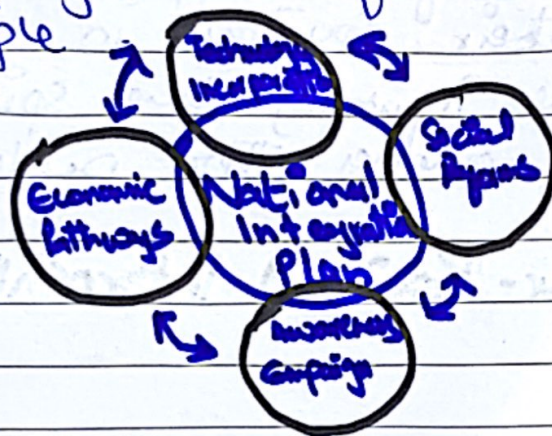 Technology
Incorporation
Social
Reforms
Economic
Pathways
National
Integration
Plan
Awareness
Campaign